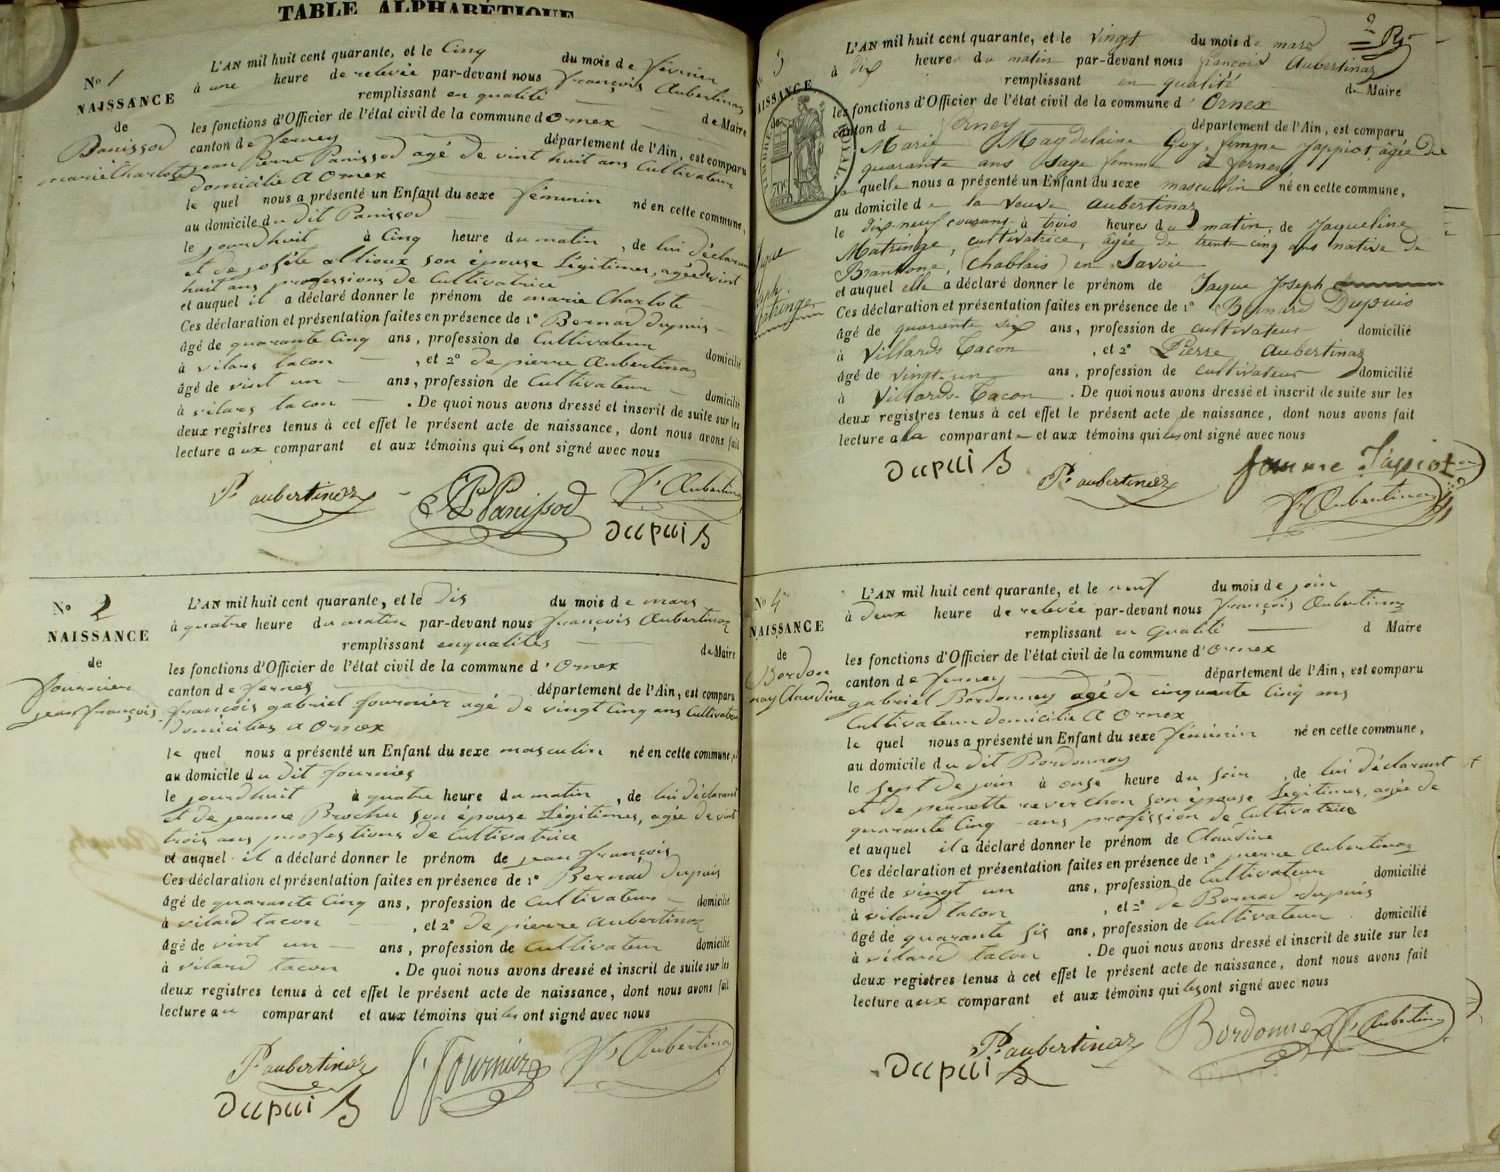 TABLE ALPHABÉTIQUE
N° 1
NAISSANCE
de
Panissod
marie Charlote
L'AN mil huit cent quarante, et le Cinq du mois de février
à une heure de relevée par-devant nous françois Aubertinaz
remplissant en qualité de Maire
les fonctions d'Officier de l'état civil de la commune d Ornex
canton de ferney département de l'Ain, est comparu
jean Pierre Panissod agé de vint huit ans Cultivateur
domicilié A Ornex
le quel nous a présenté un Enfant du sexe féminin né en cette commune,
au domicile du dit Panissod
le jourdhuit à Cinq heure du matin, de lui déclarant
et de josète allioux son épouse Légitimes, agée de vint
huit ans professions de Cultivatrice
et auquel il a déclaré donner le prénom de marie Charlote
Ces déclaration et présentation faites en présence de 1° Bernad dupuis
âgé de quarante Cinq ans, profession de Cultivateur domicilié
à vilars tacon, et 2° de pierre Aubertinaz
âgé de vint un ans, profession de Cultivateur domicilié
à vilars tacon. De quoi nous avons dressé et inscrit de suite sur les
deux registres tenus à cet effet le présent acte de naissance, dont nous avons fait
lecture aux comparant et aux témoins qui les ont signé avec nous
P. aubertinaz JP Panissod f. Aubertinaz
Dupuis B
N° 2
NAISSANCE
de
fournier
jean françois
L'AN mil huit cent quarante, et le dis du mois de mars
à quatre heure du matin par-devant nous françois Aubertinaz
remplissant enqualités de Maire
les fonctions d'Officier de l'état civil de la commune d' Ornex
canton de ferney département de l'Ain, est comparu
françois gabriel fournier agé de vingt Cinq ans Cultivateur
domiciliés a Ornex
le quel nous a présenté un Enfant du sexe masculin né en cette commune,
au domicile du dit fournier
le jourdhuit à quatre heure du matin, de lui déclarant
et de jeanne Brochu son épouse Légitimes, agée de vint
trois ans professions de Cultivatrice
et auquel il a déclaré donner le prénom de jean françois
Ces déclaration et présentation faites en présence de 1° Bernad dupuis
âgé de quarante Cinq ans, profession de Cultivateur domicilié
à vilard tacon, et 2° de pierre Aubertinaz
âgé de vint un ans, profession de Cultivateur domicilié
à vilard tacon. De quoi nous avons dressé et inscrit de suite sur les
deux registres tenus à cet effet le présent acte de naissance, dont nous avons fait
lecture au comparant et aux témoins qui les ont signé avec nous
P. aubertinaz f. fournier f. Aubertinaz
Dupuis B
2
N° 3
NAISSANCE
TIMBRE 70c
L'AN mil huit cent quarante, et le vingt du mois de mars
à dix heure du matin par-devant nous françois Aubertinaz
remplissant en qualité de Maire
les fonctions d'Officier de l'état civil de la commune d' Ornex
canton de ferney département de l'Ain, est comparu
Marie Magdelaine Goy, femme Jappiot, âgée de
quarante ans Sage femme à ferney
laquelle nous a présenté un Enfant du sexe masculin né en cette commune,
au domicile de la veuve Aubertinaz
le dix neuf courant à trois heures du matin, de Jaqueline
Matringe, cultivatrice, agée de trente cinq ans native de
Brantone, (Chablais) en Savoie
et auquel elle a déclaré donner le prénom de Jaque Joseph
Ces déclaration et présentation faites en présence de 1° Bernard Dupuis
âgé de quarante six ans, profession de cultivateur domicilié
à Villards Tacon, et 2° Pierre Aubertinaz
âgé de vingt-un ans, profession de cultivateur domicilié
à Villards-Tacon. De quoi nous avons dressé et inscrit de suite sur les
deux registres tenus à cet effet le présent acte de naissance, dont nous avons fait
lecture à la comparante et aux témoins qui les ont signé avec nous
Dupuis B P. aubertinaz famme Jappiot
f. Aubertinaz
N° 4
NAISSANCE
de
Bordon
nay Claudine
L'AN mil huit cent quarante, et le neuf du mois de join
à deux heure de relevée par-devant nous françois Aubertinaz
remplissant en qualité d Maire
les fonctions d'Officier de l'état civil de la commune d' Ornex
canton de ferney département de l'Ain, est comparu
gabriel Bordonney agé de cinquante Cinq ans
Cultivateur domicilié A Ornex
le quel nous a présenté un Enfant du sexe féminin né en cette commune,
au domicile du dit Bordonnay
le sept de join à onse heure du soir, de lui déclarant
et de pernette reverchon son épouse Légitimes, agée de
quarante Cinq ans profession de Cultivatrice
et auquel il a déclaré donner le prénom de Claudine
Ces déclaration et présentation faites en présence de 1° pierre Aubertinaz
âgé de vingt un ans, profession de Cultivateur domicilié
à vilard tacon, et 2° de Bernad dupuis
âgé de quarante sis ans, profession de Cultivateur domicilié
à vilard tacon. De quoi nous avons dressé et inscrit de suite sur les
deux registres tenus à cet effet le présent acte de naissance, dont nous avons fait
lecture aux comparant et aux témoins qui les ont signé avec nous
P. aubertinaz Bordonnex f. Aubertinaz
Dupuis B